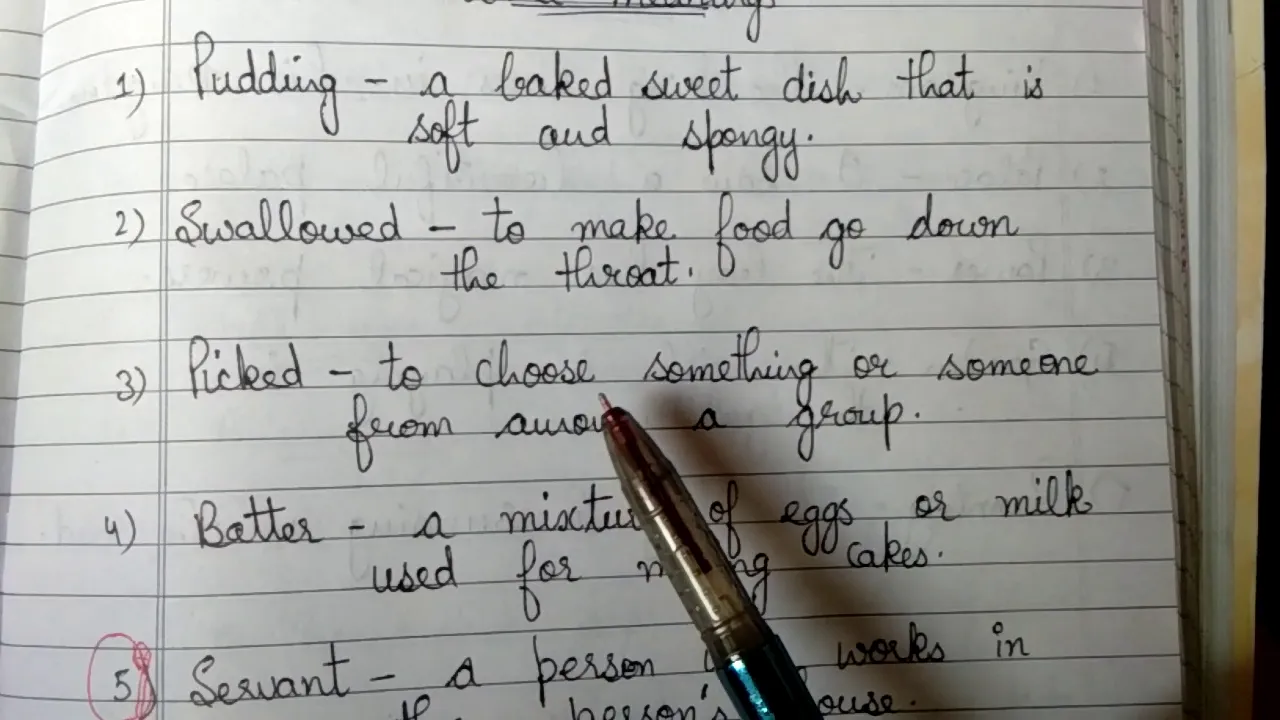 meanings
1) Pudding - a baked sweet dish that is
soft and spongy.
2) Swallowed - to make food go down
the throat.
3) Picked - to choose something or someone
from a group.
4) Batter - a of eggs or milk
used for cakes.
5) Servant - a person works in
person's